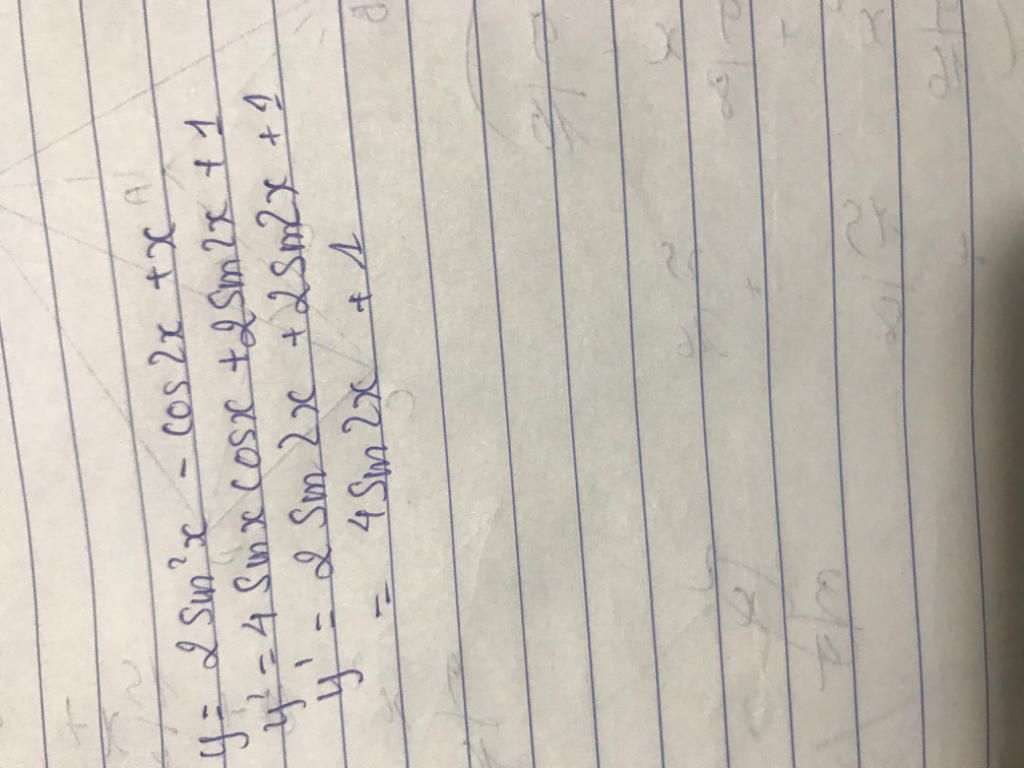 y = 2 sin²x - cos2x + x
y' = 4 sin x cosx + 2 sin2x + 1
y' = 2 sin 2x + 2 sin2x + 1
= 4 sin 2x + 1